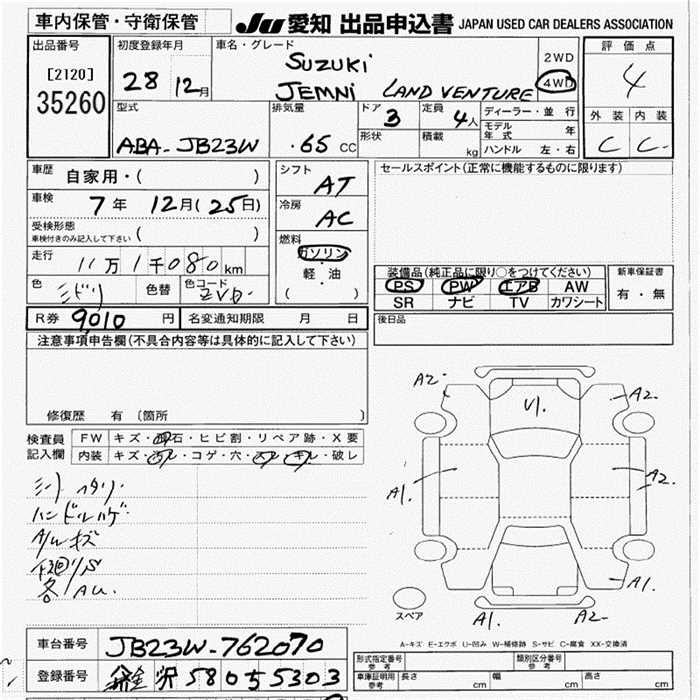 車内保管・守衛保管
JU 愛知 出品申込書 JAPAN USED CAR DEALERS ASSOCIATION
出品番号
[2120]
35260
初度登録年月
28 12月
車名・グレード
SUZUKI
JEMNI LAND VENTURE
2WD
4WD
評価点
4
外装 内装
C C-
型式
ABA-JB23W
排気量
.65 CC
ドア 3
形状
定員 4人
積載 kg
ディーラー・並行
モデル年式 年
ハンドル 左・右
車歴 自家用・( )
車検 7年 12月(25日)
受検形態
車検付きのみ記入して下さい ( )
走行 11万1千080km
色 ミドリ 色替 色コード ZVD
R券 9,010 円 名変通知期限 月 日
シフト AT
冷房 AC
燃料
ガソリン
軽・油
( )
セールスポイント(正常に機能するものに限ります)
装備品(純正品に限り○をつけてください)
PS PW エアB AW
SR ナビ TV カワシート
新車保証書
有・無
後日品
注意事項申告欄(不具合内容等は具体的に記入して下さい)
修復歴 有 〔箇所 〕
検査員記入欄
FW キズ・飛石・ヒビ割・リペア跡・X要
内装 キズ・汚レ・コゲ・穴・スレ・キレ・破レ
シート ヘタリ
ハンドルハゲ
A/Wキズ
下廻りS
各AU.
A2 U1. A2.
A1. A2.
A1.
A1. A2-
スペア
A-キズ E-エクボ U-凹み W-補修跡 S-サビ C-腐食 XX-交換済
車台番号 JB23W-762070
登録番号 沢 580 5 5303
形式指定番号 参考
類別区分番号 参考
車庫証明用 参考
長さ cm 幅 cm 高さ cm